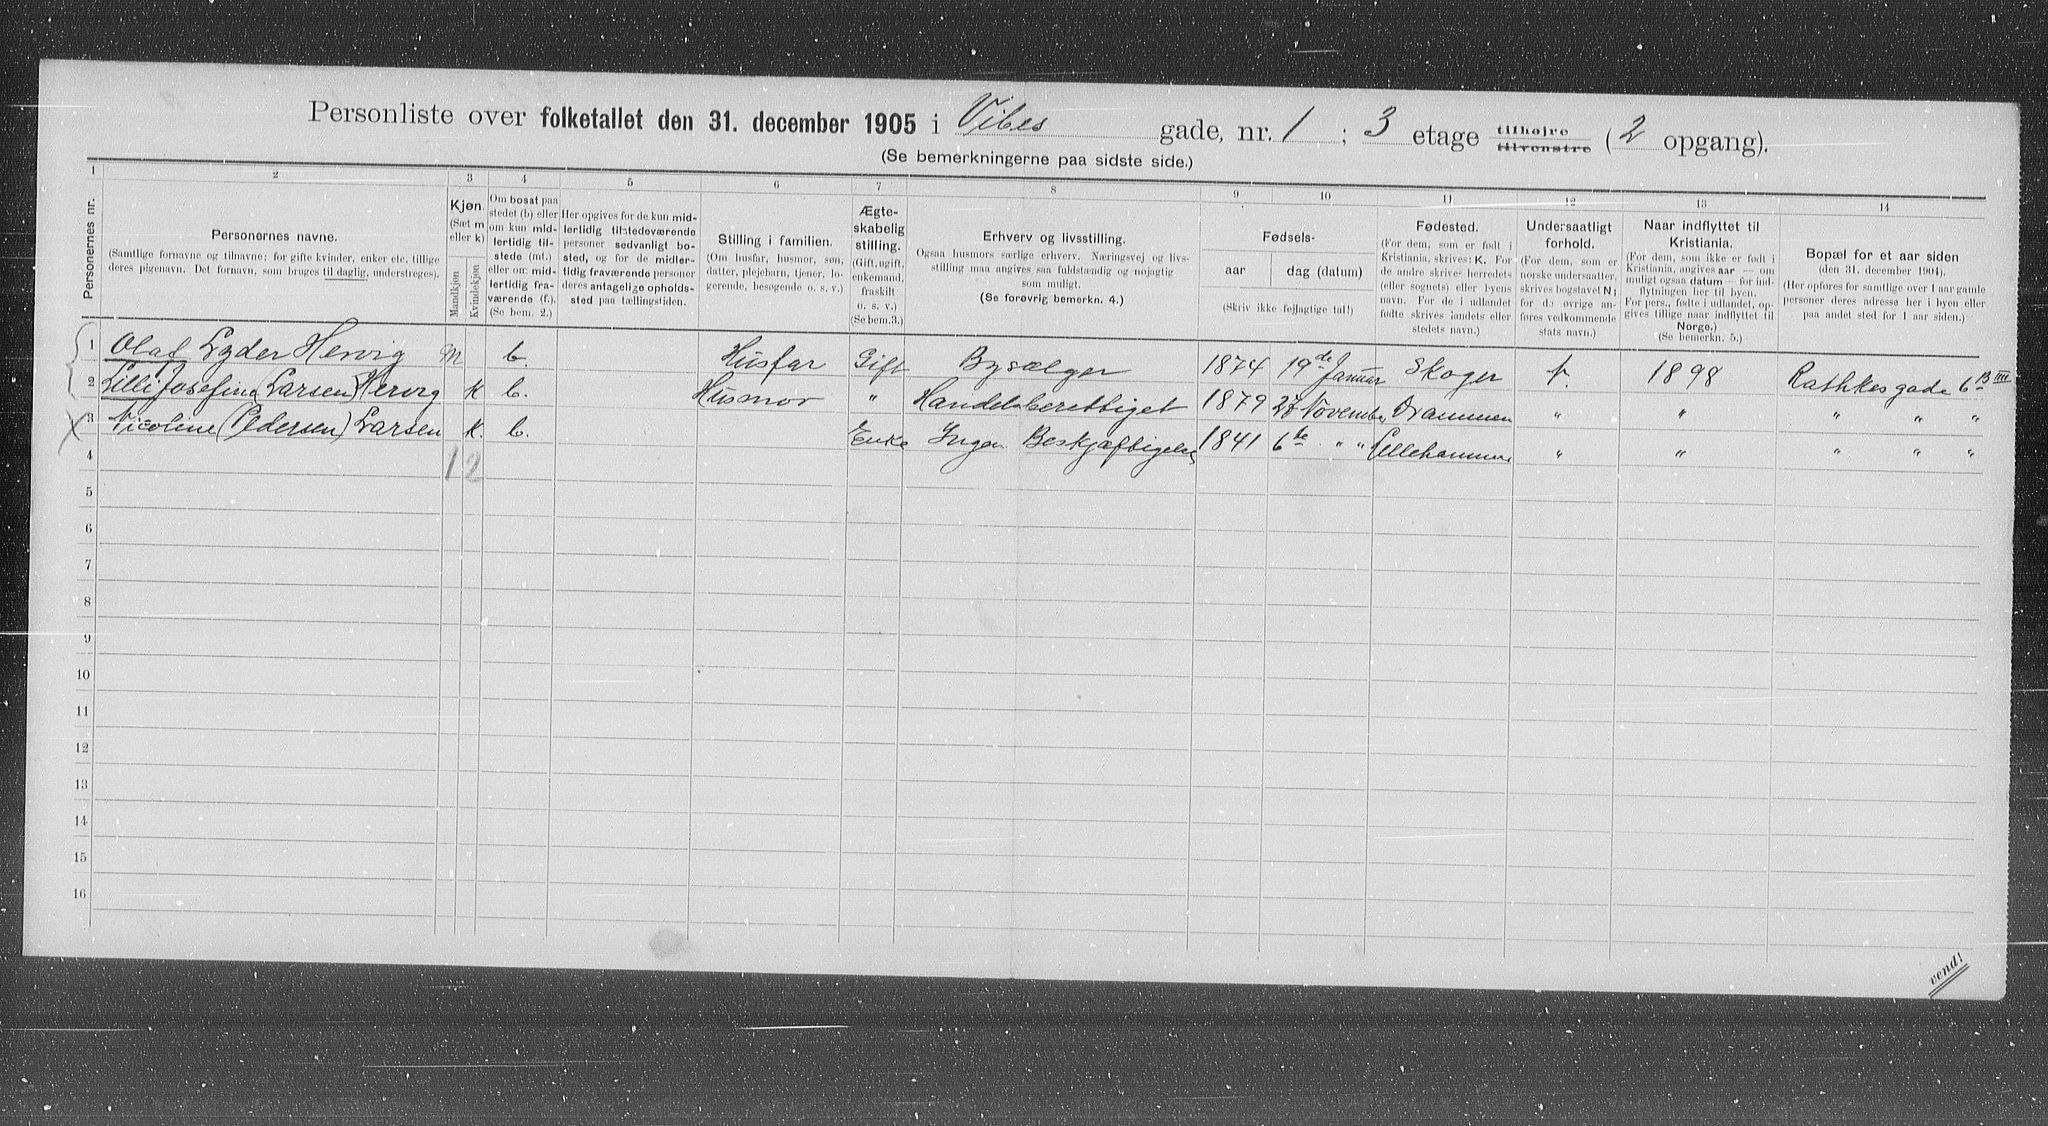 Personliste over folketallet den 31. december 1905 i Vibes gade, nr. 1 ; 3 etage tilhøjre tilvenstre (2 opgang).
(Se bemerkningerne paa sidste side.)
1 2 3 4 5 6 7 8 9 10 11 12 13 14
Personernes nr.
Personernes navne.
(Samtlige fornavne og tilnavne; for gifte kvinder, enker etc. tillige
deres pigenavn. Det fornavn, som bruges til daglig, understreges).
Kjøn.
(Sæt m
eller k)
Mandkjøn
Kvindekjøn.
Om bosat paa
stedet (b) eller
om kun mid-
lertidig til-
stede (mt.)
eller om mid-
lertidig fra-
værende (f.).
(Se bem. 2.)
Her opgives for de kun mid-
lertidig tilstedeværende
personer sedvanligt bo-
sted, og for de midler-
tidig fraværende personer
deres antagelige opholds-
sted paa tællingstiden.
Stilling i familien.
(Om husfar, husmor, søn,
datter, plejebarn, tjener, lo-
gerende, besøgende o. s. v.)
Ægte-
skabelig
stilling.
(Gift, ugift,
enkemand,
fraskilt
o. s. v.)
(Se bem.3.)
Erhverv og livsstilling.
Ogsaa husmors særlige erhverv. Næringsvej og livs-
stilling maa angives saa fuldstændig og nøjagtig
som muligt.
(Se forøvrig bemerkn. 4.)
Fødsels-
aar
dag (datum)
(Skriv ikke fejlagtige tal!)
Fødested.
(For dem, som er født i
Kristiania, skrives: K. For
de andre skrives herredets
(eller sognets) eller byens
navn. For de i udlandet
fødte skrives landets eller
stedets navn.)
Undersaatligt
forhold.
(For dem, som er
norske undersaatter,
skrives bogstavet N;
for de øvrige an-
føres vedkommende
stats navn.)
Naar indflyttet til
Kristiania.
(For dem, som ikke er født i
Kristiania, angives aar — om
muligt ogsaa datum — for ind-
flytningen her til byen.
For pers., fødte i udlandet, op-
gives tillige naar indflyttet til
Norge.)
(Se bemerkn. 5.)
Bopæl for et aar siden
(den 31. december 1904).
(Her opføres for samtlige over 1 aar gamle
personer deres adresse her i byen eller
paa andet sted for 1 aar siden.)
1 Olaf Lyder Hervig M b. Husfar Gift Bysælger 1874 19de Januar Skoger N. 1898 Rathkes gade 6B III
2 Lilli Josefine (Larsen) Hervig K b. Husmor " Handelsberettiget 1879 November Drammen " " " " "
3 Nicoline (Pedersen) Larsen K. b. Enke Ingen Beskjæftigelse 1841 6te " " Lillehammer " " " " "
4 1 2
5
6
7
8
9
10
11
12
13
14
15
16
vend!